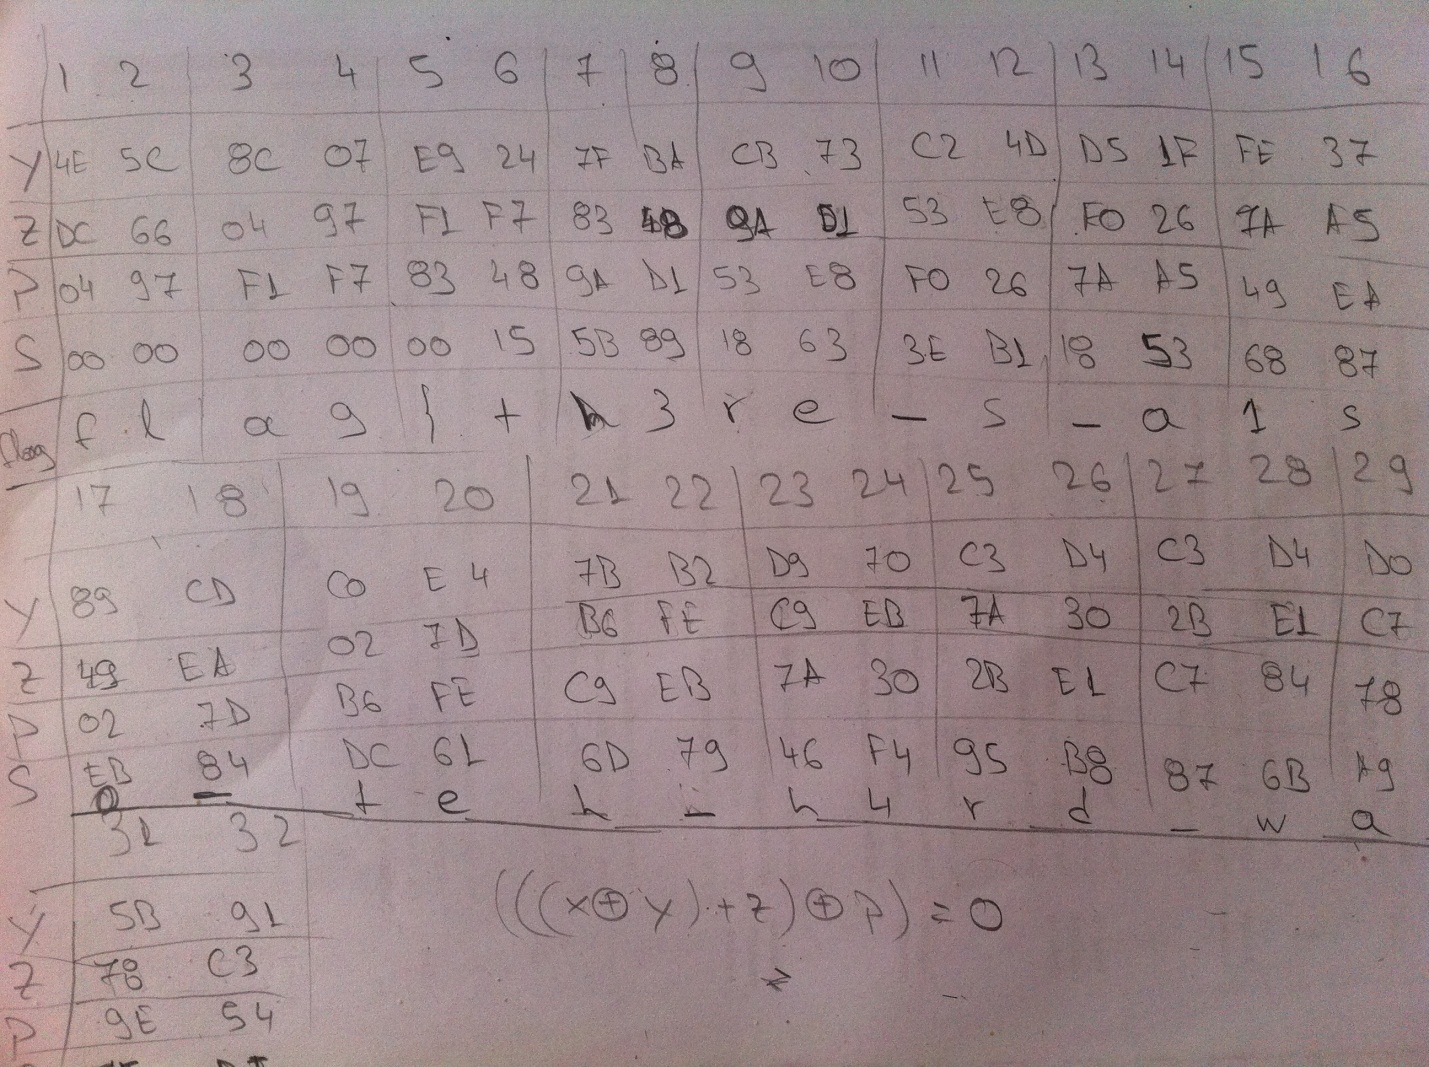 1 2 3 4 5 6 7 8 9 10 11 12 13 14 15 16
Y 4E 5C 8C 07 E9 24 7F BA CB 73 C2 4D D5 1F FE 37
Z DC 66 04 97 F1 F7 83 48 9A D1 53 E8 F0 26 7A A5
P 04 97 F1 F7 83 48 9A D1 53 E8 F0 26 7A A5 49 EA
S 00 00 00 00 00 15 5B 89 18 63 3E B1 18 53 68 87
flag f l a g { t h 3 r e _ s _ a 1 s
17 18 19 20 21 22 23 24 25 26 27 28 29
Y 89 CD C0 E4 7B B2 D9 70 C3 D4 C3 D4 D0
Z 49 EA 02 7D B6 FE C9 EB 7A 30 2B E1 C7
P 02 7D B6 FE C9 EB 7A 30 2B E1 C7 84 78
S EB 84 DC 61 6D 79 46 F4 95 B8 87 6B A9
0 _ t e h _ h 4 r d _ w a
31 32
Y 5B 91
Z 78 C3
P 9E 54
(((x⊕y)+z)⊕P) = 0